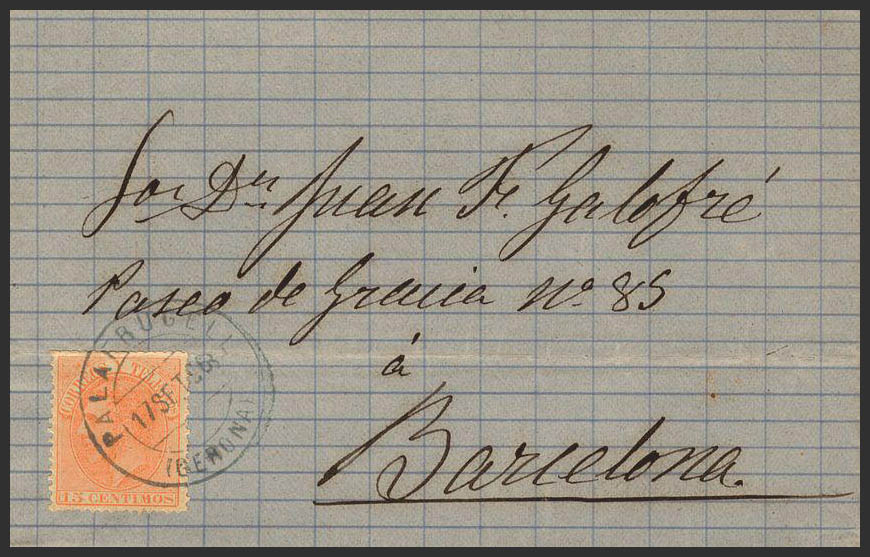 Sor Dn Juan Fr. Galofré
Paseo de Gracia No 85
á
Barcelona.
PALAFRUGELL
17 SET
(GERONA)
CORREOS Y TELEGS
15 CENTIMOS